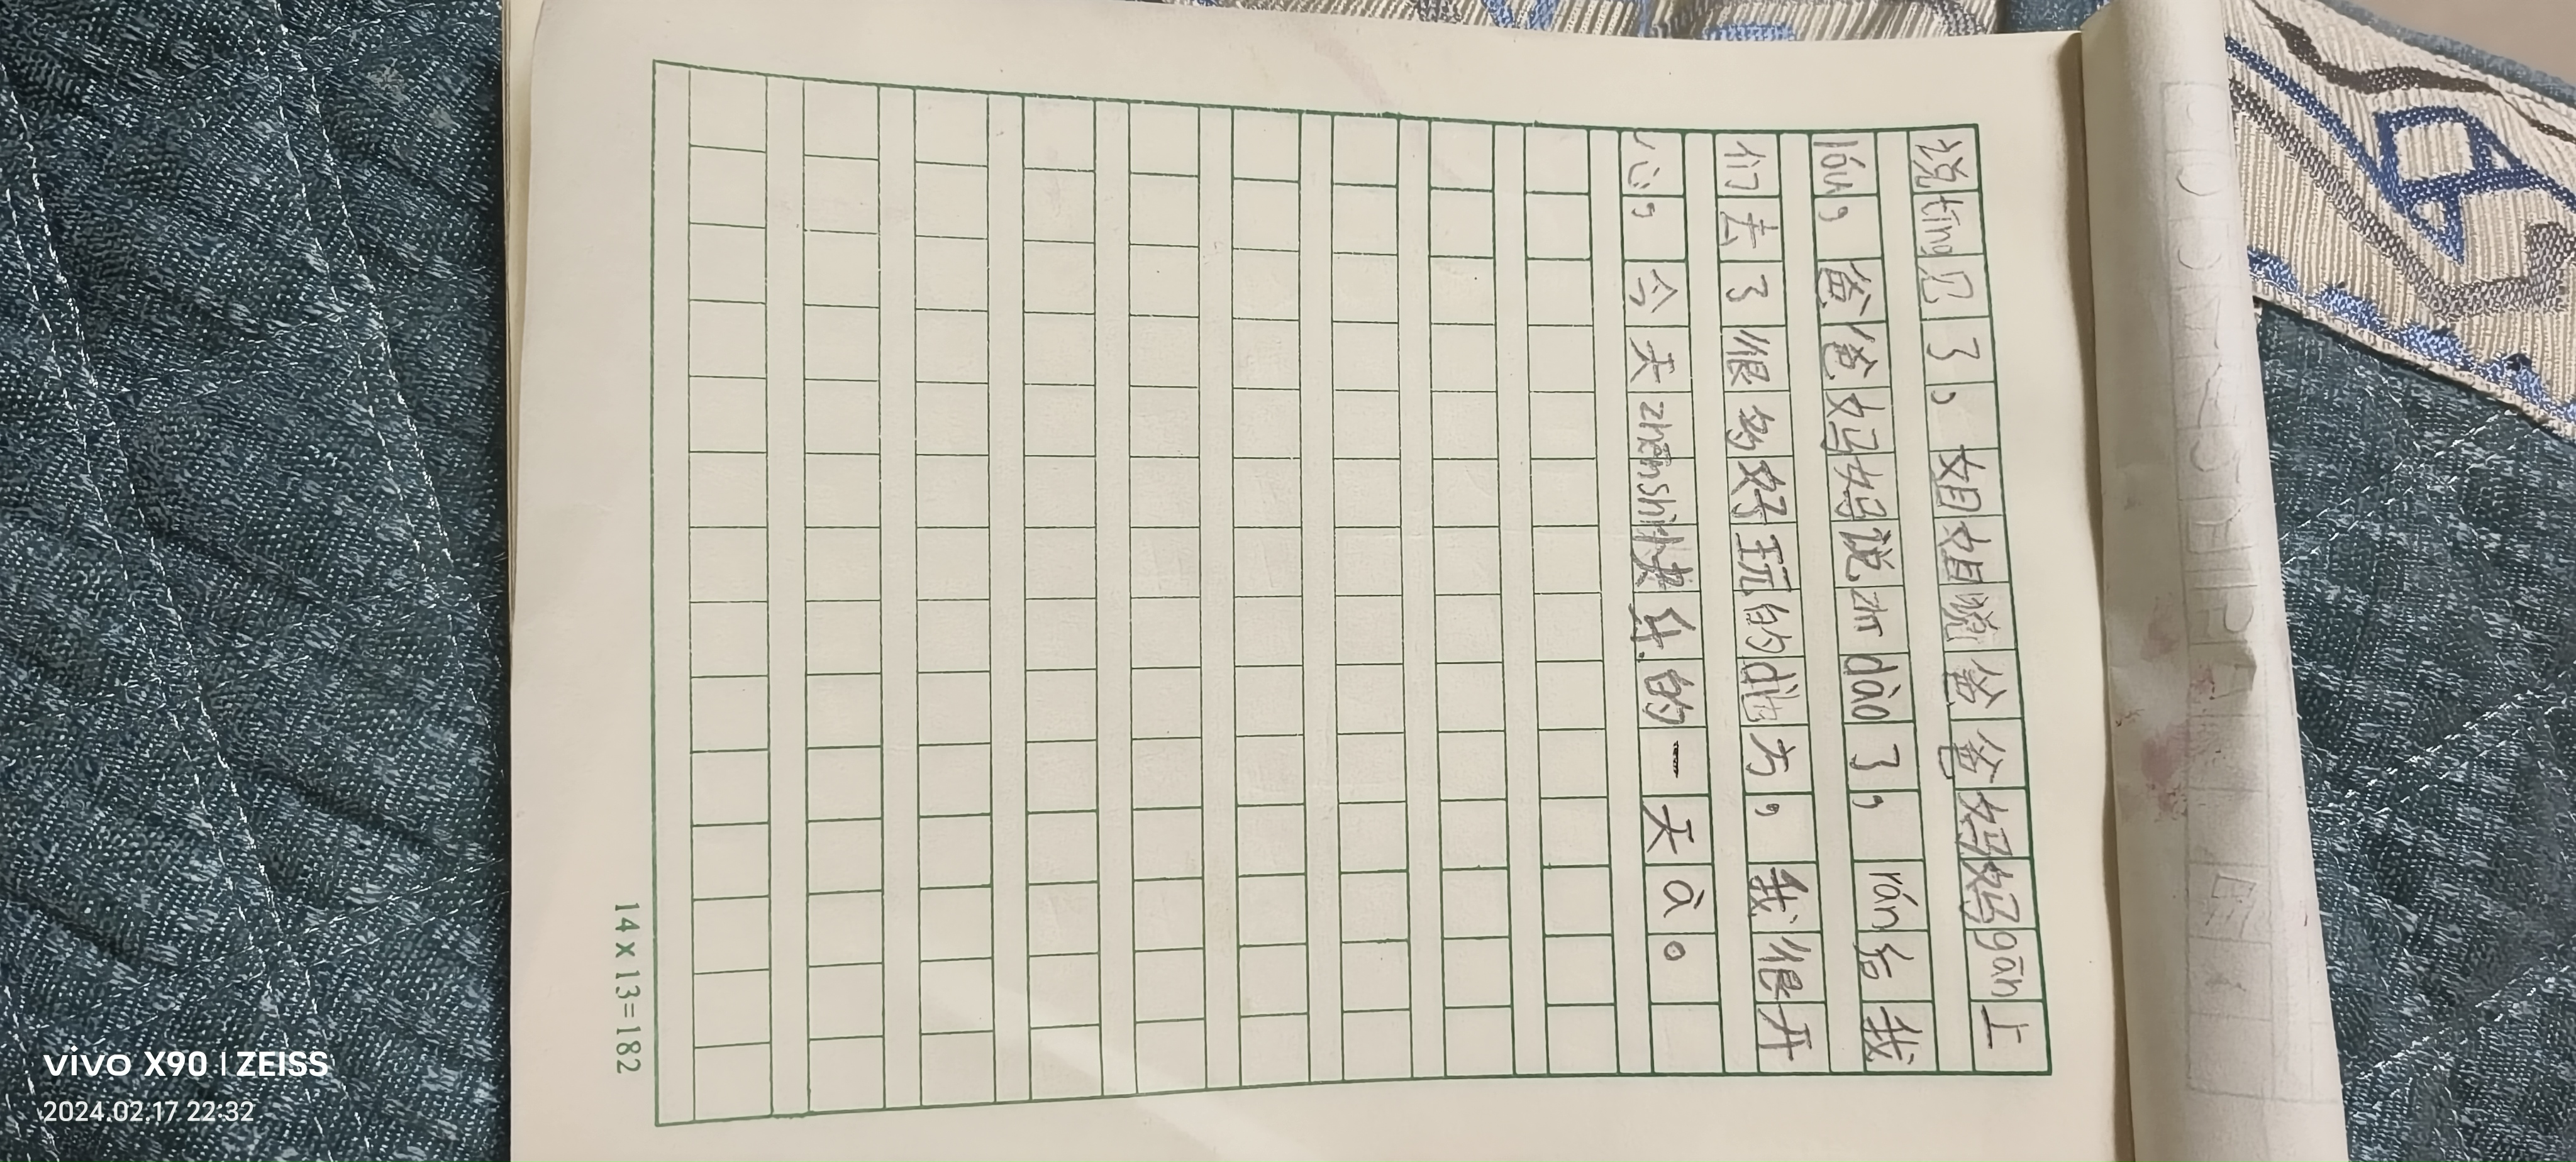 说tīng见了，姐姐说爸爸妈妈gǎn上
lóu，爸爸妈妈说zhī dào了，rán后我
们去了很多好玩的dì方，我很开
心，今天zhēnshì快乐的一天à。
14×13=182
vivo X90 | ZEISS
2024.02.17 22:32